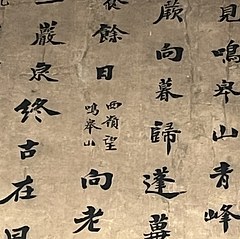 見鳴皋山青峰
蕨向暮歸蓬蓽
餘日西嶺望鳴皋山向老
嚴泉終古在